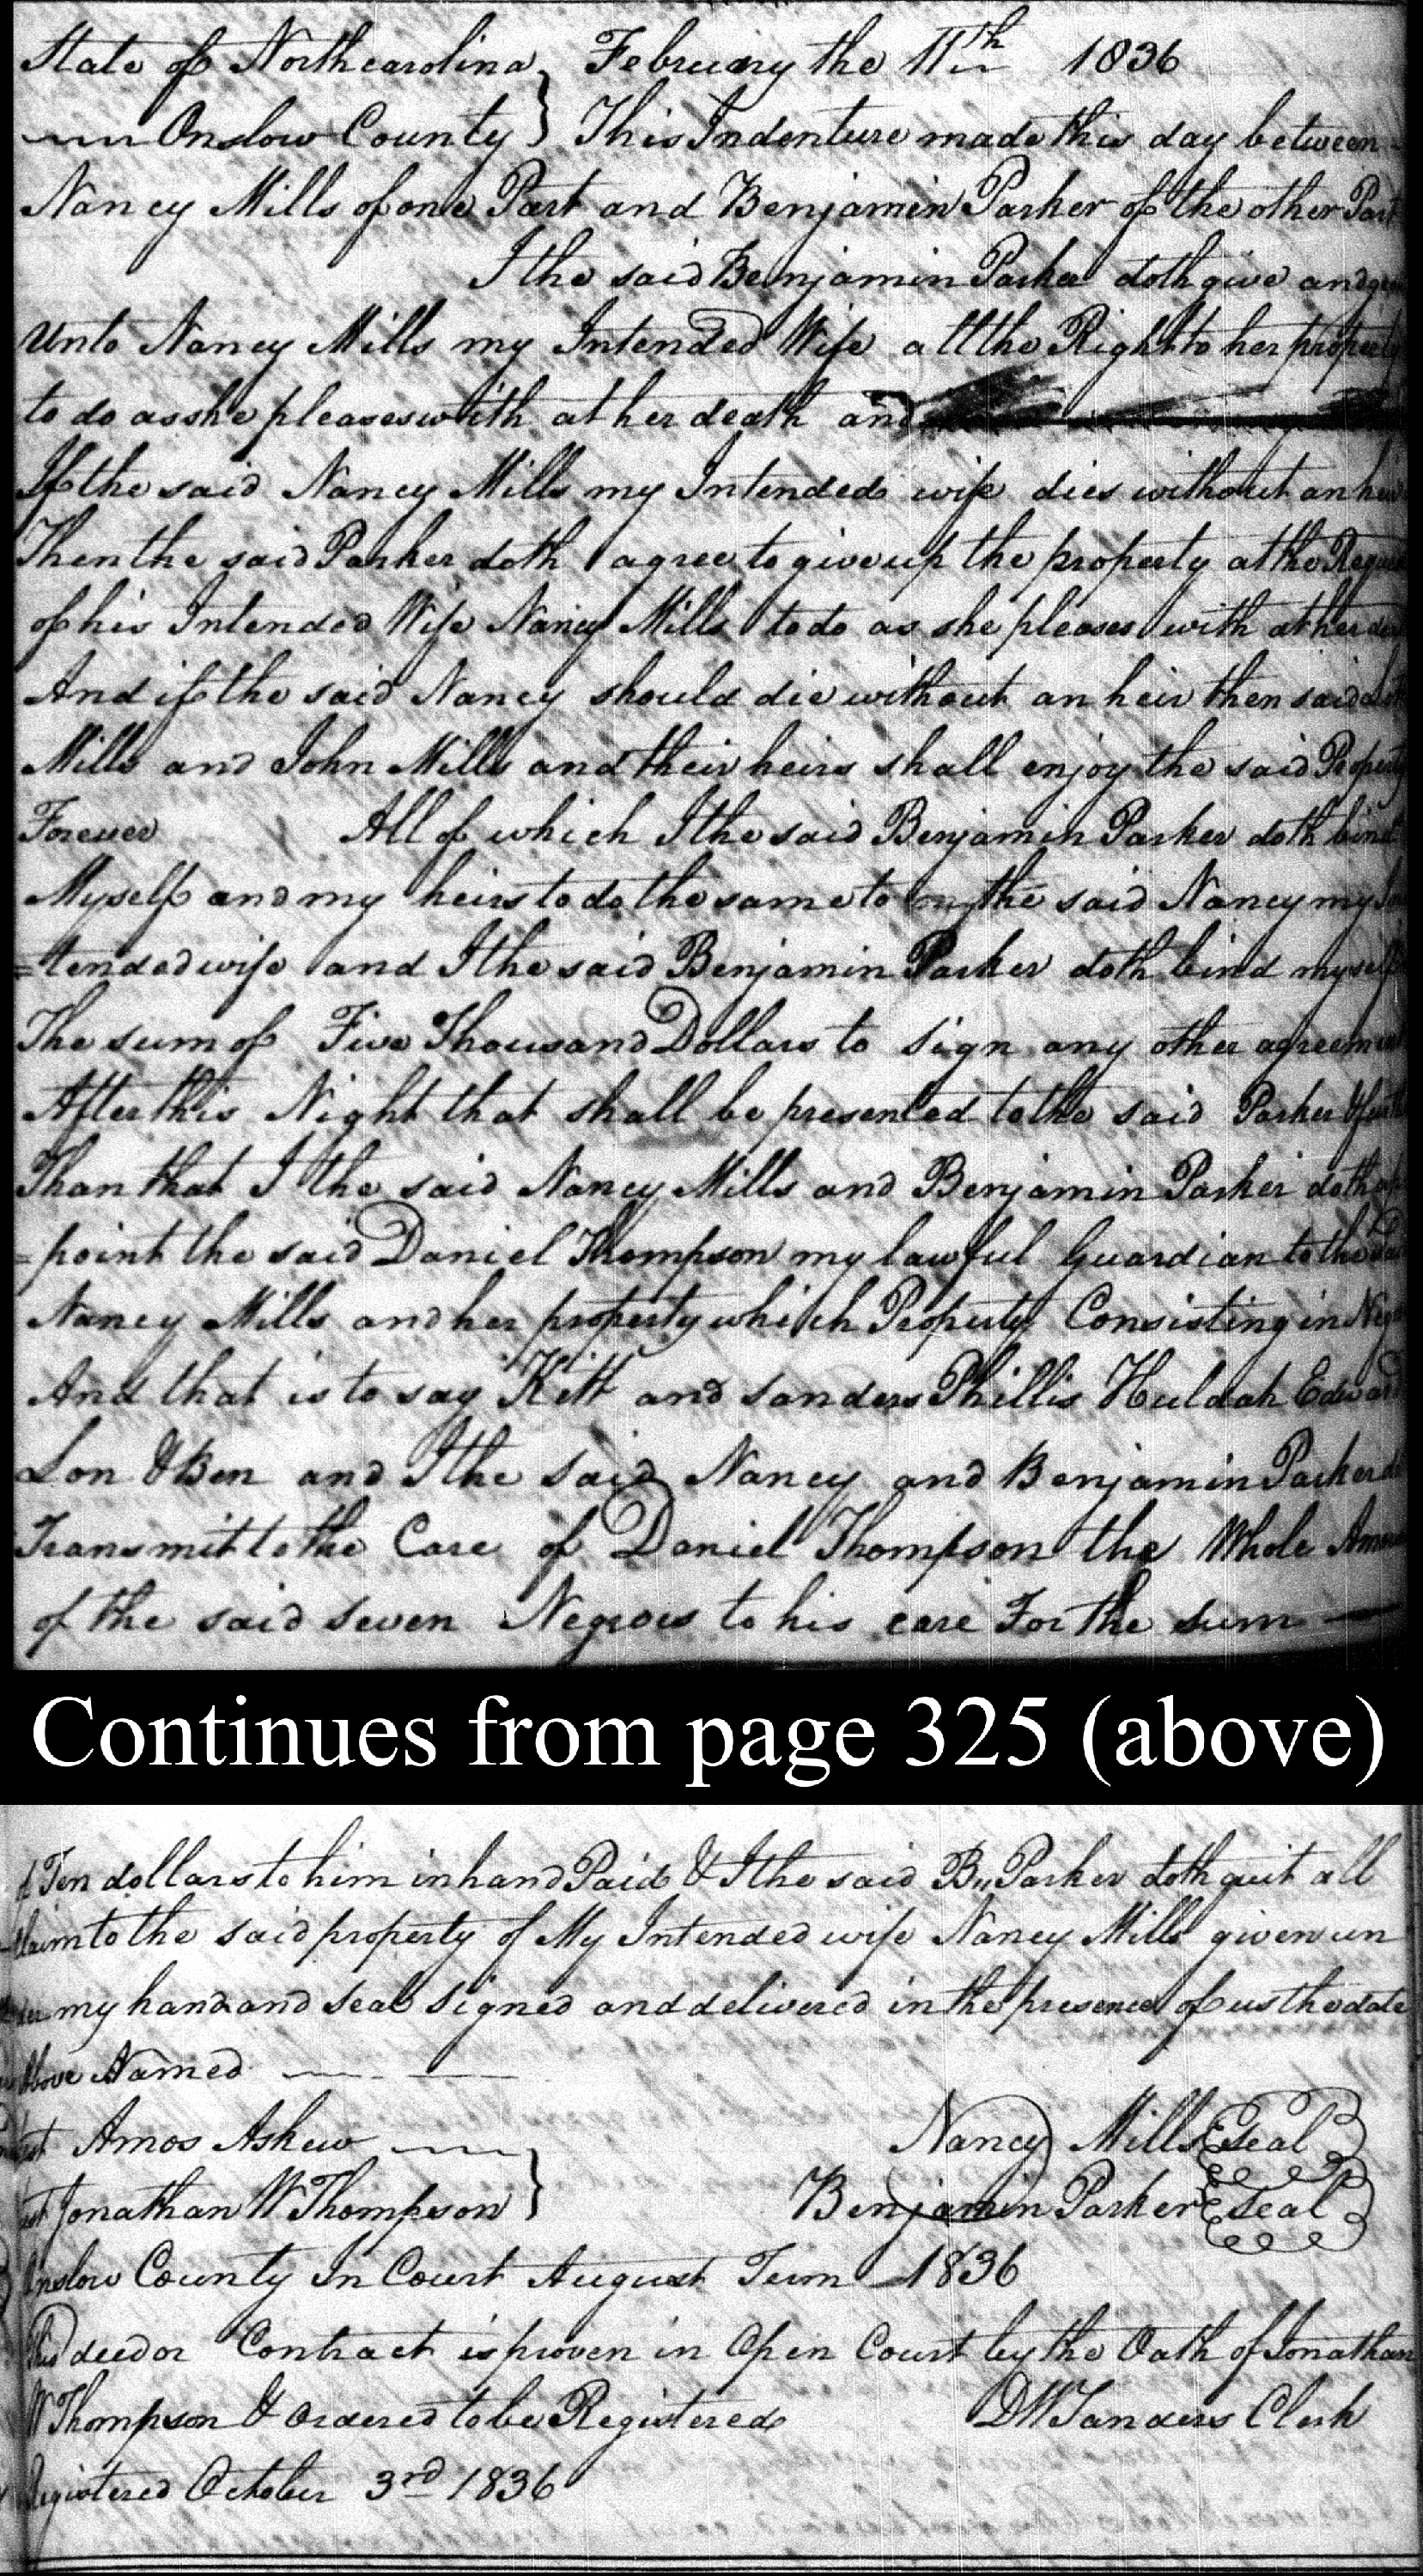 State of Northcarolina } February the 11th 1836
Onslow County } This Indenture made this day between
Nancy Mills of one Part and Benjamin Parker of the other Part
I the said Benjamin Parker doth give and
Unto Nancy Mills my Intended Wife all the Right to her property
to do as she pleases with at her death and
If the said Nancy Mills my Intended wife dies without an heir
Then the said Parker doth agree to give up the property at the
of his Intended Wife Nancy Mills to do as she pleases with at her
And if the said Nancy should die without an heir then said
Mills and John Mills and their heirs shall enjoy the said Property
Forever All of which I the said Benjamin Parker doth bind
Myself and my heirs to do the same to the said Nancy my
=tended wife and I the said Benjamin Parker doth bind myself
The sum of Five Thousand Dollars to sign any other agreement
After this Night that shall be presented to the said Parker
Than that I the said Nancy Mills and Benjamin Parker doth
=point the said Daniel Thompson my lawful Guardian to the
Nancy Mills and her property which Property Consisting in
And that is to say Kitt and Sanders Phillis Huldah Edward
Lon & Ben and I the Said Nancy and Benjamin Parker
Transmit to the Care of Daniel Thompson the Whole
of the said seven Negroes to his care For the sum
Continues from page 325 (above)
of Ten dollars to him in hand Paid & I the said Bn Parker doth quit all
Claim to the said property of My Intended wife Nancy Mills given un
my hand and seal Signed and delivered in the presence of us the date
above Named
Amos Askew Nancy Mills {Seal}
Jonathan W Thompson } Benjamin Parker {Seal}
Onslow County In Court August Term 1836
This deed or Contract is proven in Open Court by the Oath of Jonathan
W Thompson & ordered to be Registered DW Sanders Clerk
Registered October 3rd 1836